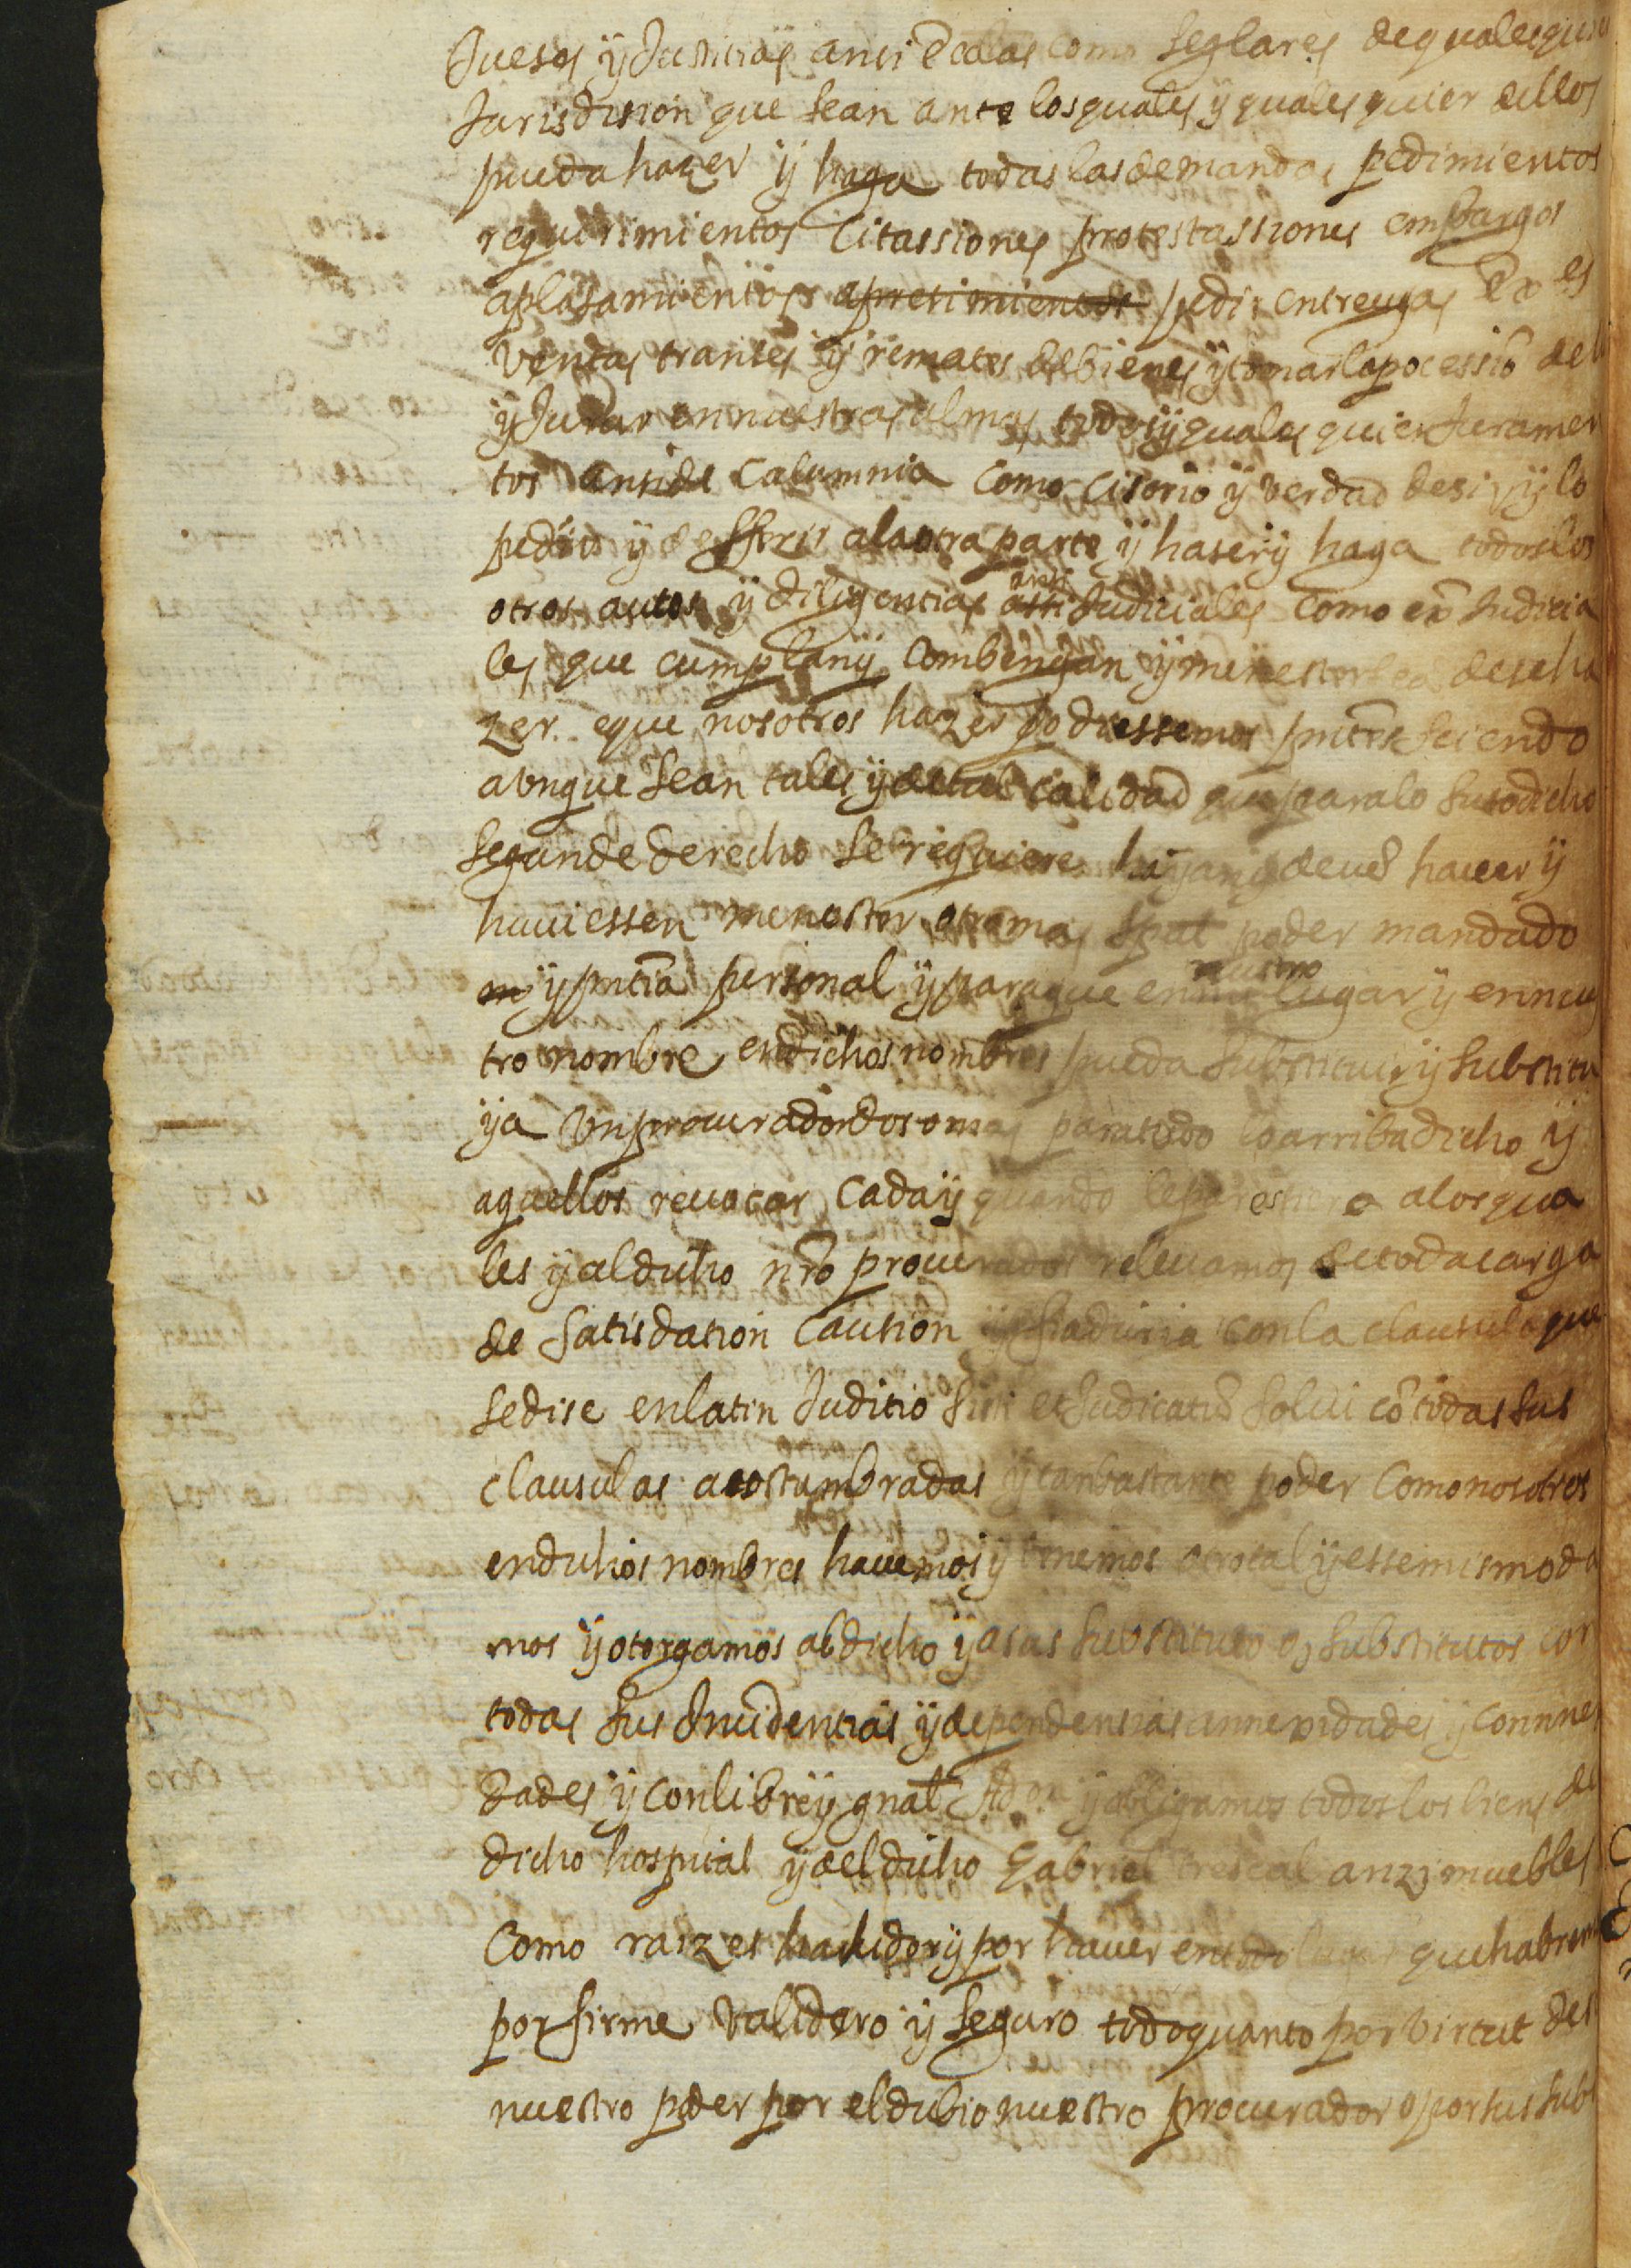 Jueses ÿ Justicias ansi Ecclas como seglares de qualesquier
Jurisdision que sean ante los quales ÿ quales quier dellos
pueda hazer ÿ haga todas las demandas pedimientos
requirimientos Citassiones protestassiones empargos
aplasamientos apresimientos pedir entreugas Exes
ventas transes ÿ remates de bienes ÿ tomar la pocessiō del
ÿ Jurar en nuestras almas todos ÿ quales quier Juramen
tos ansi de Calumnia como cisorio ÿ verdad desir ÿ lo
pedir ÿ defferir a la otra parte ÿ haser ÿ haga todos los
otros autos ÿ diligencias assi ansi Judiciales como ex Judicia
les que cumplan ÿ combengan ÿ menester sea de se ha
zer. e que nosotros hazer podiessemos pntēs seiendo
avnque sean tales ÿ de tal calidad que para lo susodicho
segun de derecho se requiere haÿan ÿ deuē hauer ÿ
huuiessen menester otro mas spāl poder mandado
m ÿ pntīa personal ÿ para que en mi nuestro lugar ÿ en nues
tro nombre en dichos nombres pueda substituir ÿ substitu
ÿa Vn procurador dos o mas para todo lo arriba dicho ÿ
aquellos reuocar Cada ÿ quando le paresiere a los qua
les ÿ al dicho nr̄o procurador releuamos de toda carga
de satisdasion Caution ÿ fiaduria con la clausula que
se dise en latin Juditio sisti et Judicatū solui cō todas sus
clausulas acostumbradas ÿ tan bastante poder Como nosotros
en dichos nombres hauemos ÿ tenemos otro tal ÿ esse mismo da
mos ÿ otorgamos al dicho ÿ a sus substituto o substitutos con
todas sus Incidentias ÿ dependensias annexidades ÿ connnex
dades ÿ con libre ÿ gnāl Adōn ÿ obligamos todos los bienes del
dicho hospital ÿ del dicho Gabriel anzi muebles
Como raizes hauidos ÿ por hauer en todo lugar que habremos
por firme Validero ÿ seguro todo quanto por virtut des
nuestro poder por el dicho nuestro procurador o por sus subs